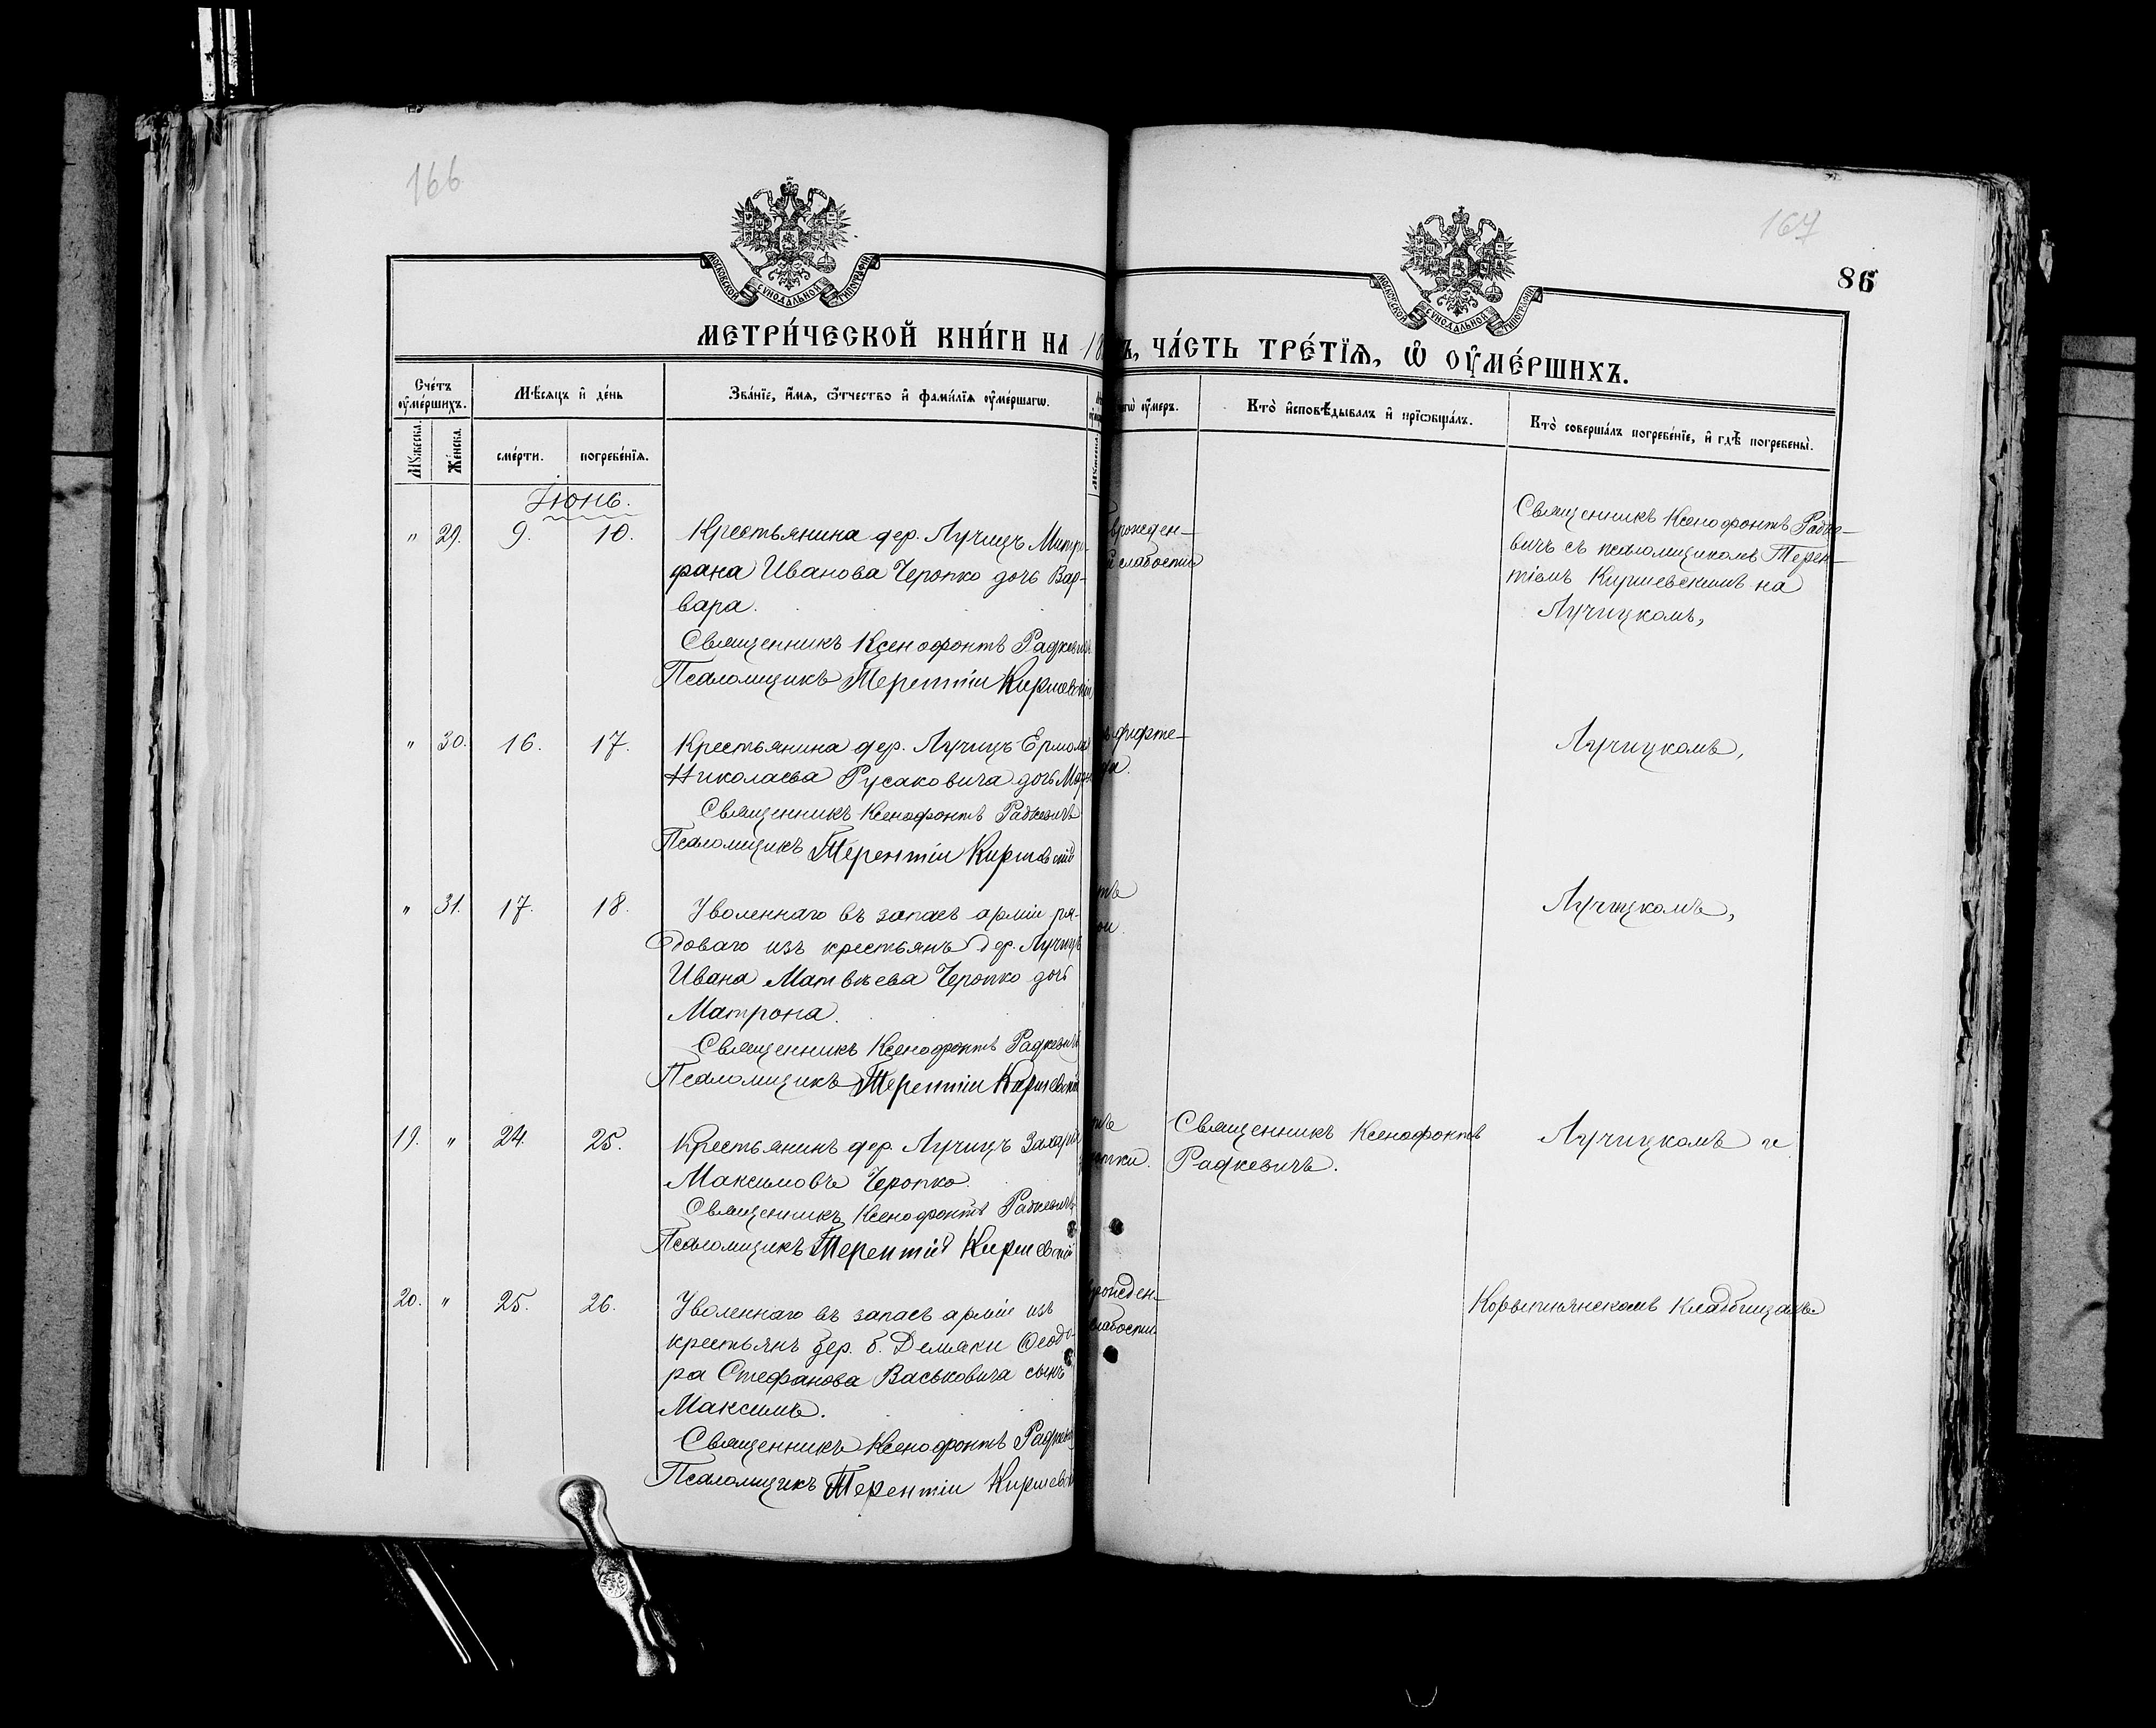 166
167
86
МОСКОВСКОЙ СѴНОДАЛЬНОЙ ТИПОГРАФІИ
МОСКОВСКОЙ СѴНОДАЛЬНОЙ ТИПОГРАФІИ
МЕТРИ́ЧЕСКОЙ КНИ́ГИ НА 18 Ъ, ЧА́СТЬ ТРЕ́ТЇѦ, Ѡ ОУМЕ́РШИХЪ.
Сче́тъ оуме́ршихъ.
Мѣ́сяцъ и де́нь
Зва́нїе, и́мя, ѻ́тчество и фами́лїя оуме́ршагѡ.
оу҆меръ.
Кто̀ и҆сповѣ́дывалъ и҆ прїѡбща́лъ.
Кто̀ соверша́лъ погребе́нїе, и҆ гдѣ̀ погребены̀.
Мꙋ́жеска.
Же́нска.
сме́рти.
погребе́нїя.
Іюнь.
" 29. 9. 10. Крестьянина дер. Лучицъ Митро-
фана Иванова Черопко дочь Вар-
вара.
Священникъ Ксенофонтъ Радкевичъ
Псаломщикъ Терентій Киршевскій
врожден-
слабости
Священникъ Ксенофонтъ Радке-
вичъ съ псаломщикомъ Терен-
тіемъ Киршевскимъ на
Лучицкомъ,
" 30. 16. 17. Крестьянина дер. Лучицъ Ермолая
Николаева Русаковича дочь
Священникъ Ксенофонтъ Радкевичъ
Псаломщикъ Терентій Киршевскій
дифте-
Лучицкомъ,
" 31. 17. 18. Уволеннаго въ запасъ арміи ря-
доваго изъ крестьянъ дер. Лучицъ
Ивана Матвѣева Черопко дочь
Матрона.
Священникъ Ксенофонтъ Радкевичъ
Псаломщикъ Терентій Киршевскій
Лучицкомъ,
19. " 24. 25. Крестьянинъ дер. Лучицъ Захарія
Максимовъ Черопко.
Священникъ Ксенофонтъ Радкевичъ
Псаломщикъ Терентій Киршевскій
Священникъ Ксенофонтъ
Радкевичъ.
Лучицкомъ и
20. " 25. 26. Уволеннаго въ запасъ арміи изъ
крестьянъ дер. б. Демяки Ѳеодо-
ра Стефанова Васьковича сынъ
Максимъ.
Священникъ Ксенофонтъ Радкевичъ
Псаломщикъ Терентій Киршевскій
врожден-
слабости
кладбищахъ.